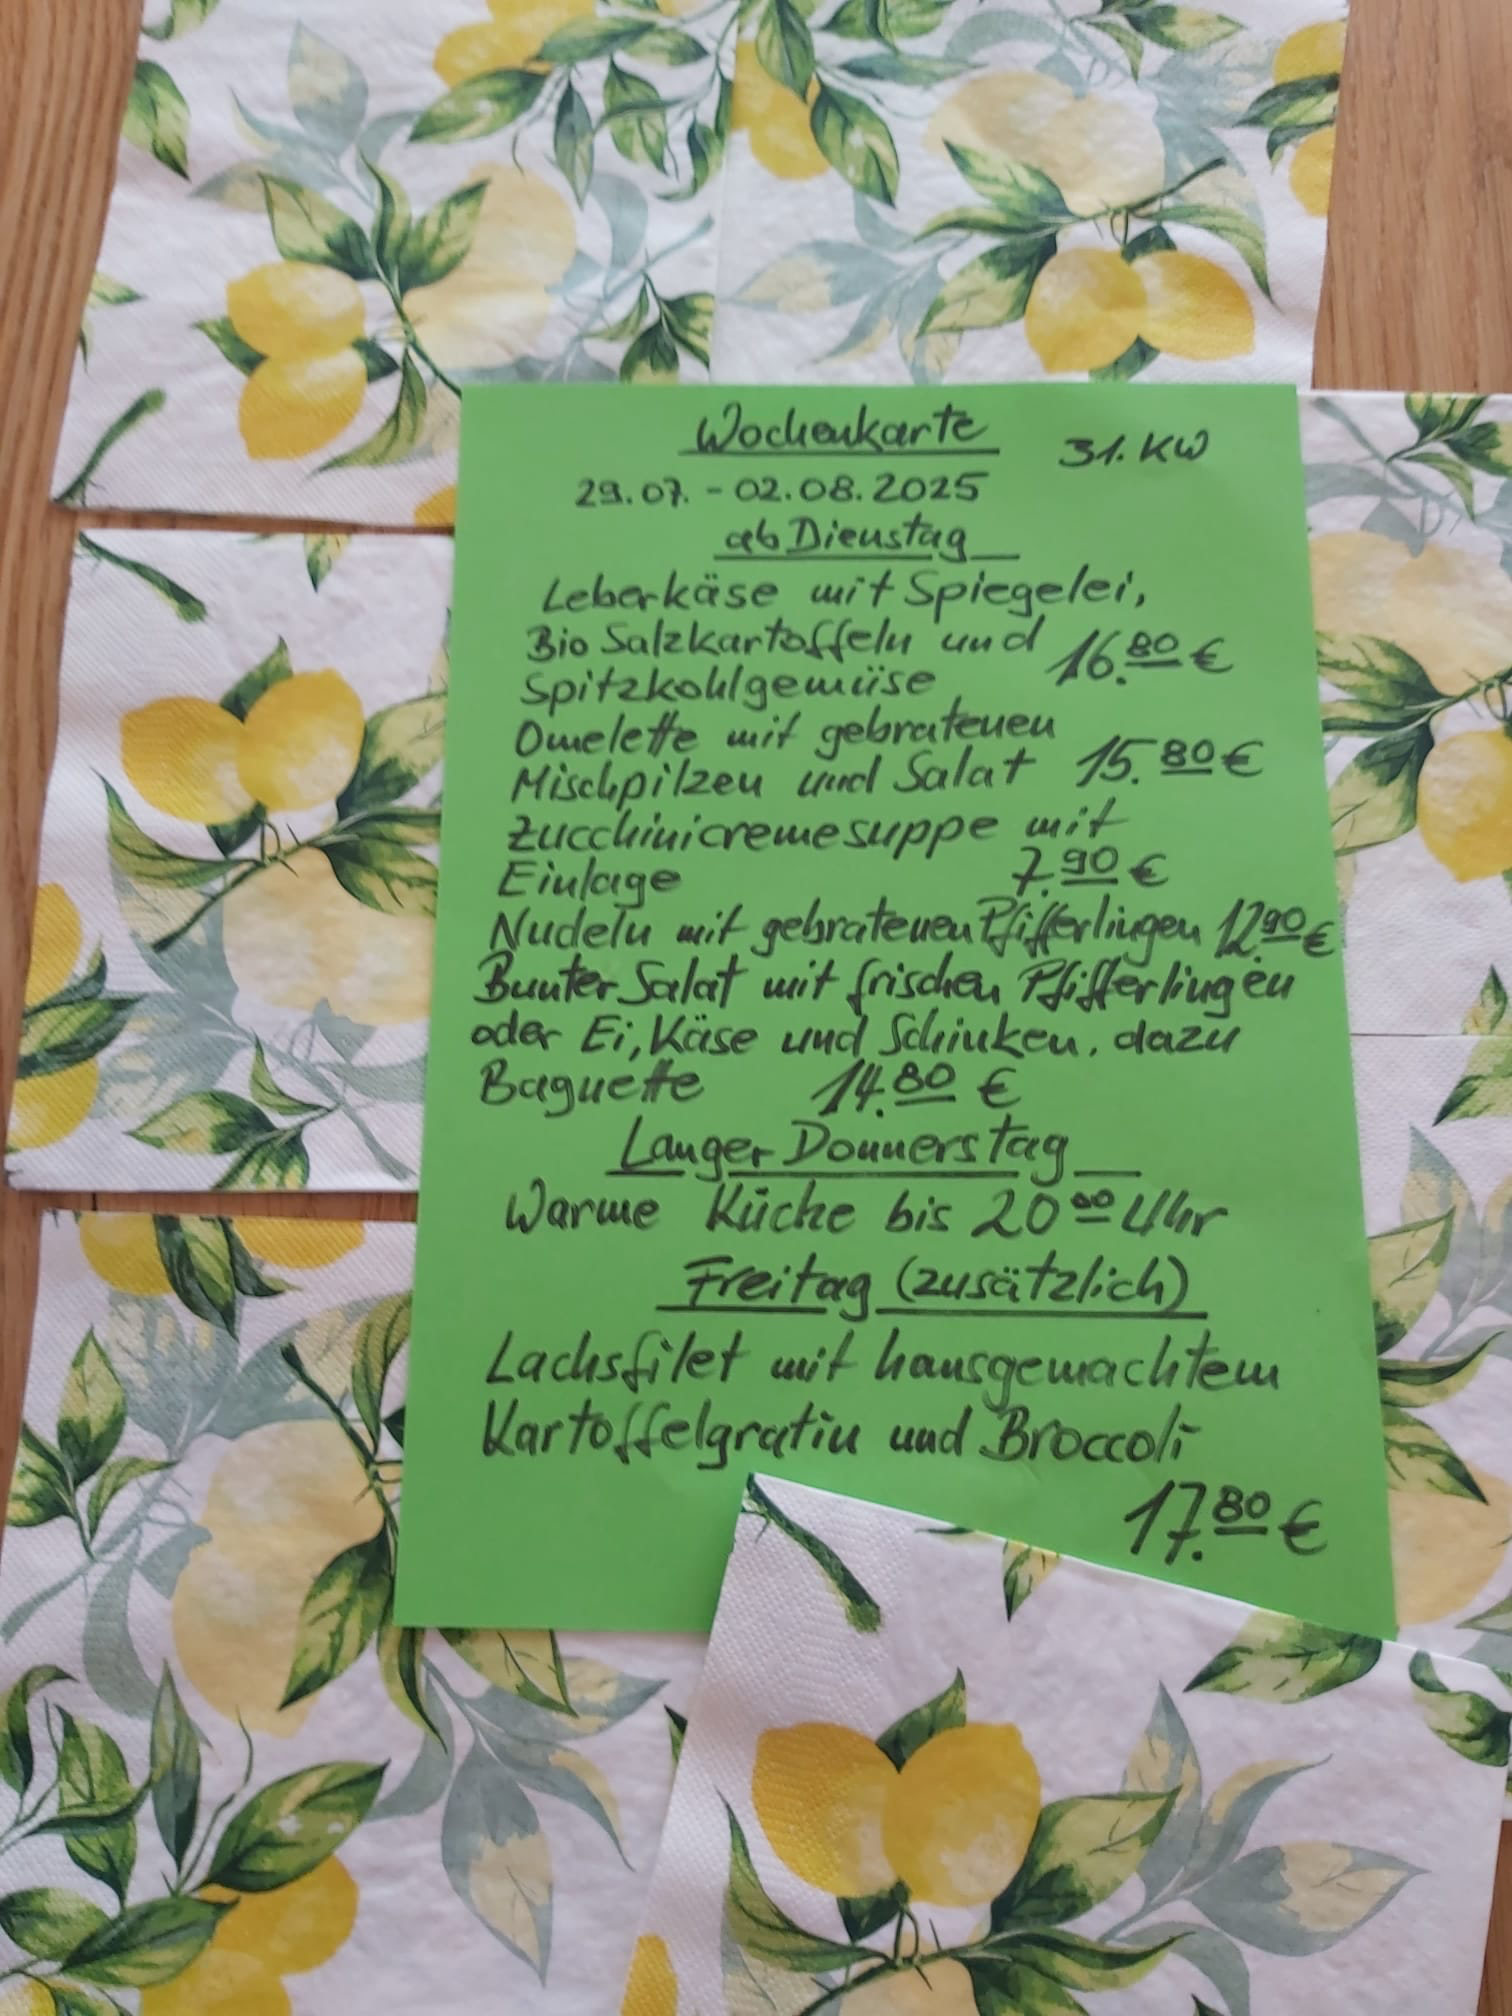 Wochenkarte 31. KW
29.07. - 02.08.2025
ab Dienstag
Leberkäse mit Spiegelei,
Bio Salzkartoffeln und 16.80 €
Spitzkohlgemüse
Omelette mit gebratenen
Mischpilzen und Salat 15.80 €
Zucchinicremesuppe mit
Einlage 7.90 €
Nudeln mit gebratenen Pfifferlingen 12.90 €
Bunter Salat mit frischen Pfifferlingen
oder Ei, Käse und Schinken, dazu
Baguette 14.80 €
Langer Donnerstag
Warme Küche bis 20 00 Uhr
Freitag (zusätzlich)
Lachsfilet mit hausgemachtem
Kartoffelgratin und Broccoli
17.80 €